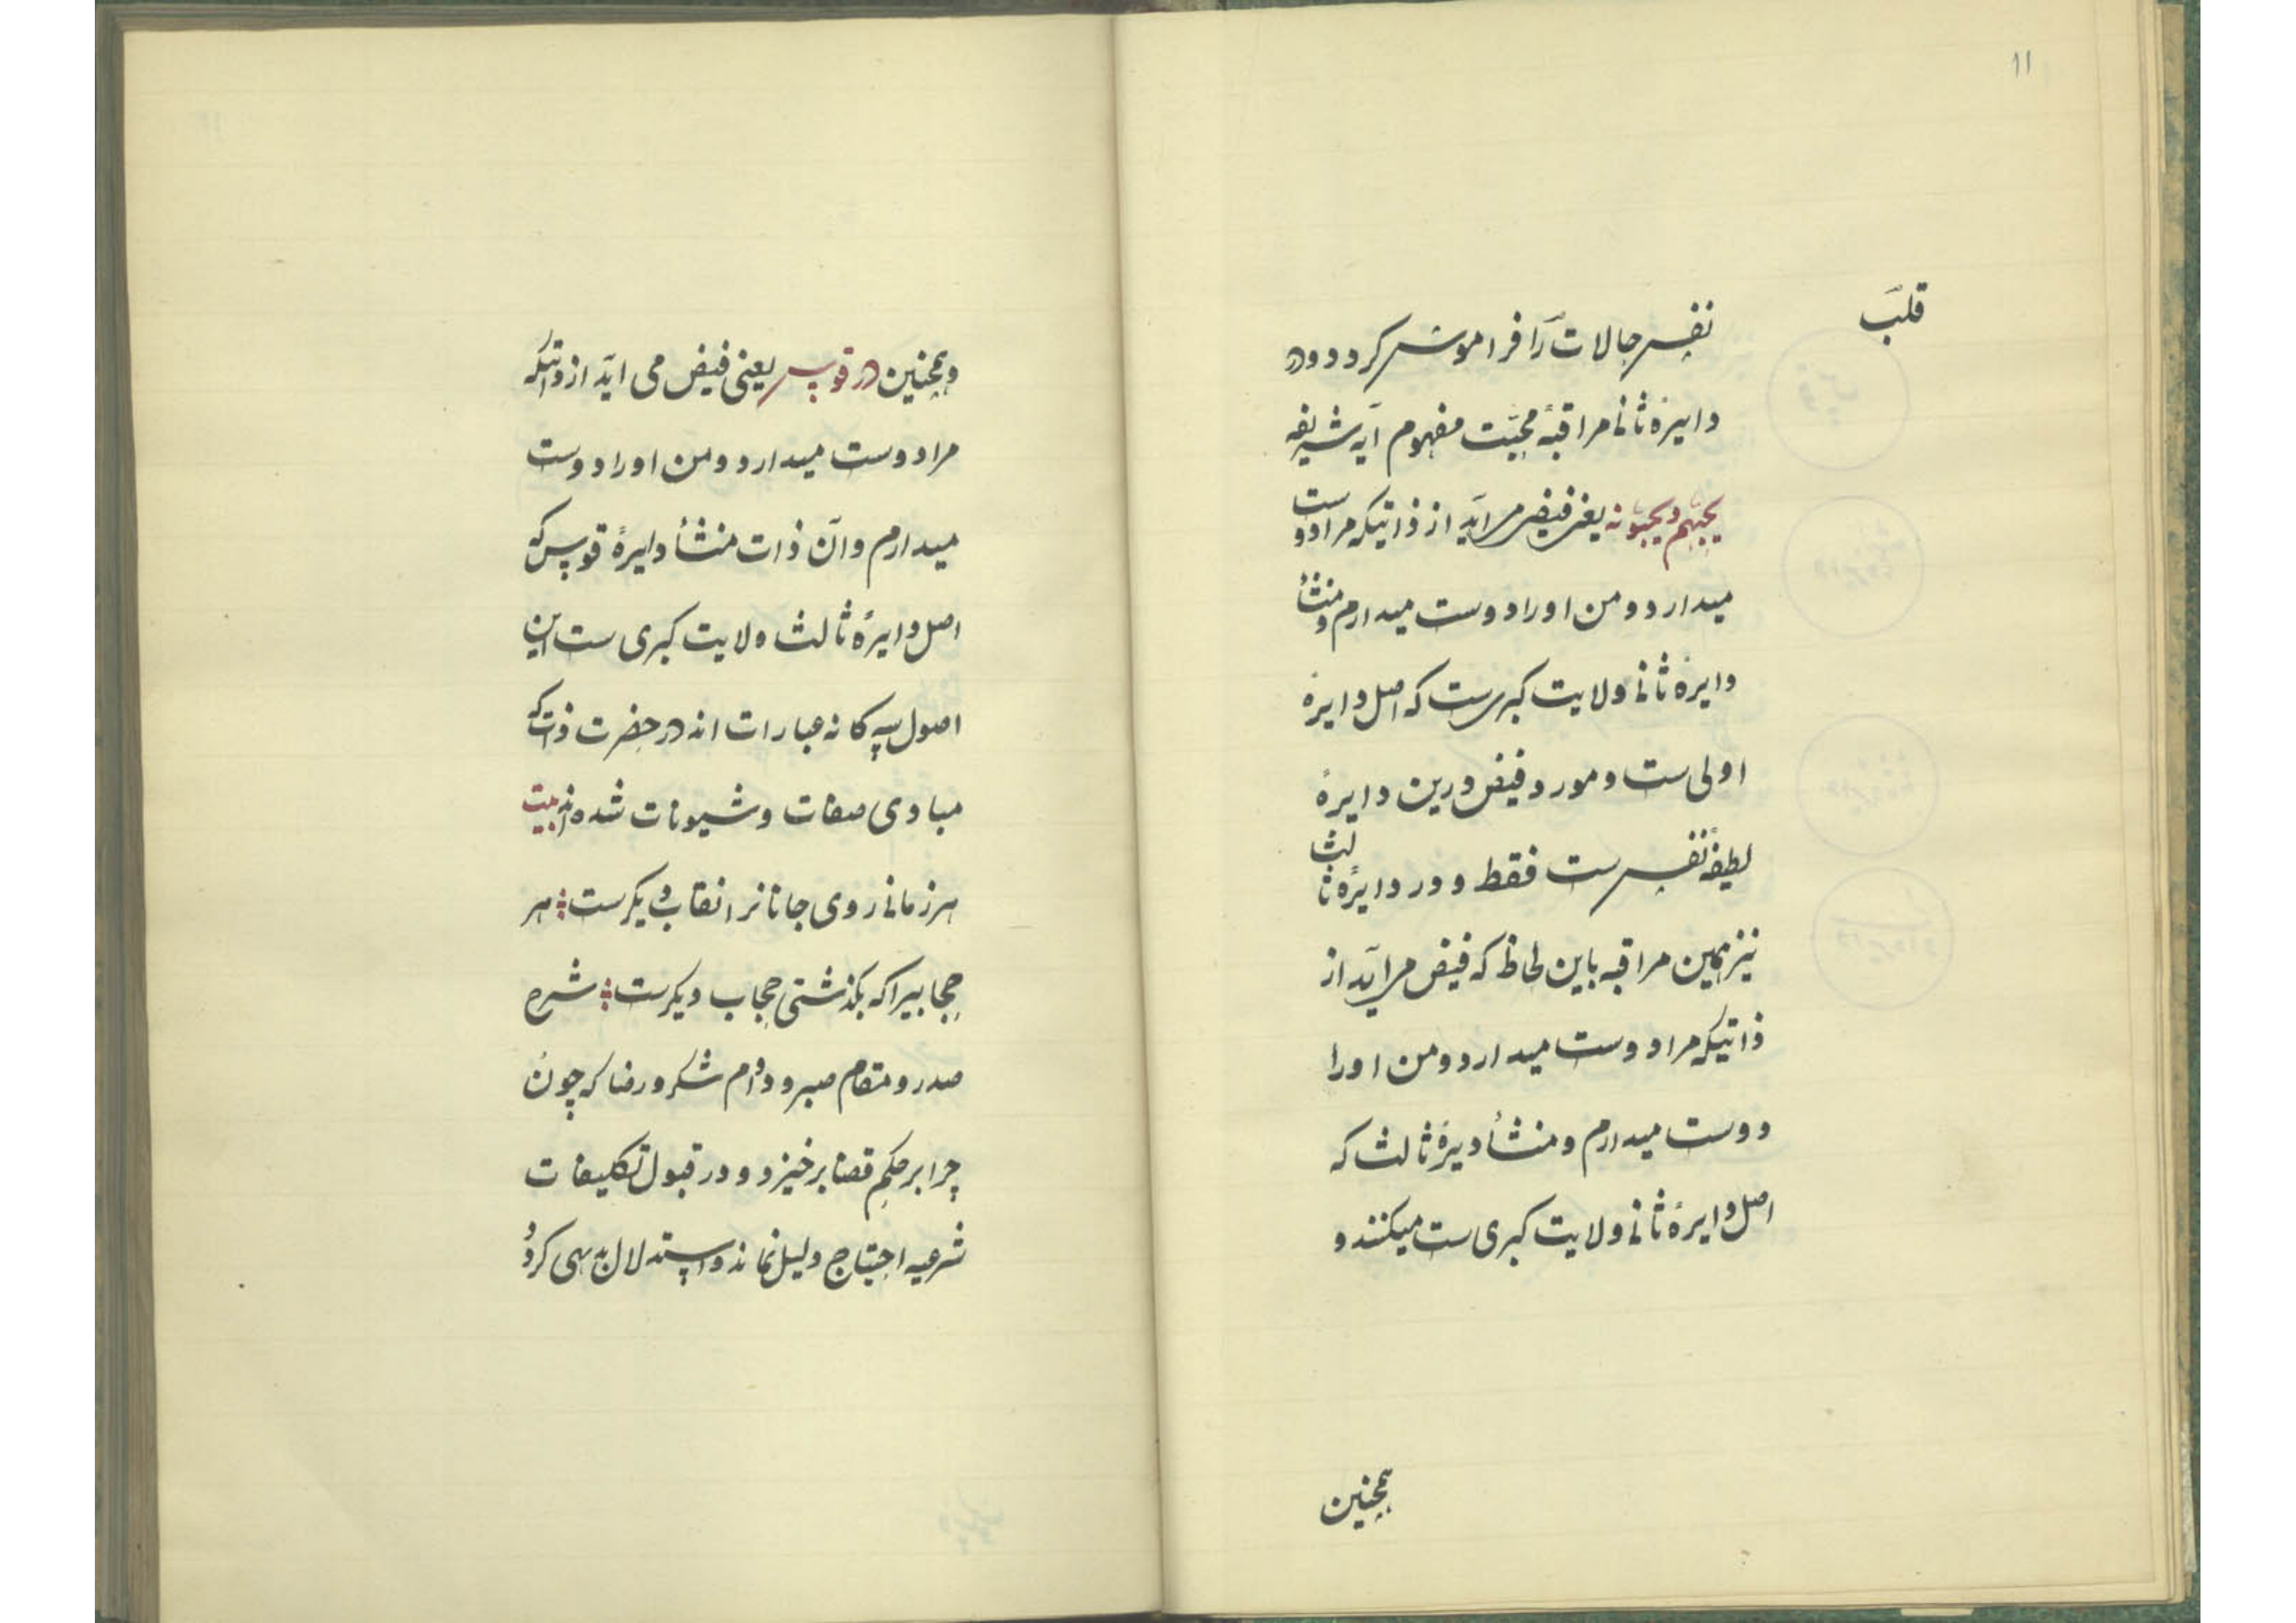 ۱۱
قلب
نفس حالات را فراموش کردد ودر
دایرهٔ ثانی مراقبهٔ محبّت مفهوم آیه شریفه
یحبّهم ویحبّونه یعنی فیض می آید از ذاتیکه مرا دوست
میدارد ومن اورا دوست میدارم ومنشأ
دایرهٔ ثانی ولایت کبری ست که اصل دایرهٔ
اولی ست ومورد فیض درین دایرهٔ
لطیفهٔ نفس ست فقط ودر دایرهٔ ثالث
نیز همین مراقبه باین لحاظ که فیض می آید از
ذاتیکه مرا دوست میدارد ومن اورا
دوست میدارم ومنشأ دیرهٔ ثالث که
اصل دایرهٔ ثانی ولایت کبری ست میکنند و
همچنین
وهمچنین در قوس یعنی فیض می آید از ذاتیکه
مرا دوست میدارد ومن اورا دوست
میدارم وآن ذات منشأ دایرهٔ قوس که
اصل دایرهٔ ثالث ولایت کبری ست این
اصول سه کانه عبارات اند در حضرت ذات که
مبادی صفات وشیونات شده اند بیت
هر زمانی روی جانانرا نقاب دیکرست ؞ هر
حجابیرا که بکذشتی حجاب دیکرست ؞ شرح
صدر ومقام صبر ودوام شکر ورضا که چون
چرا بر حکم قضا برخیزد ودر قبول تکلیفات
شرعیه احتیاج دلیل نماند واستدلال بدیهی کردد و